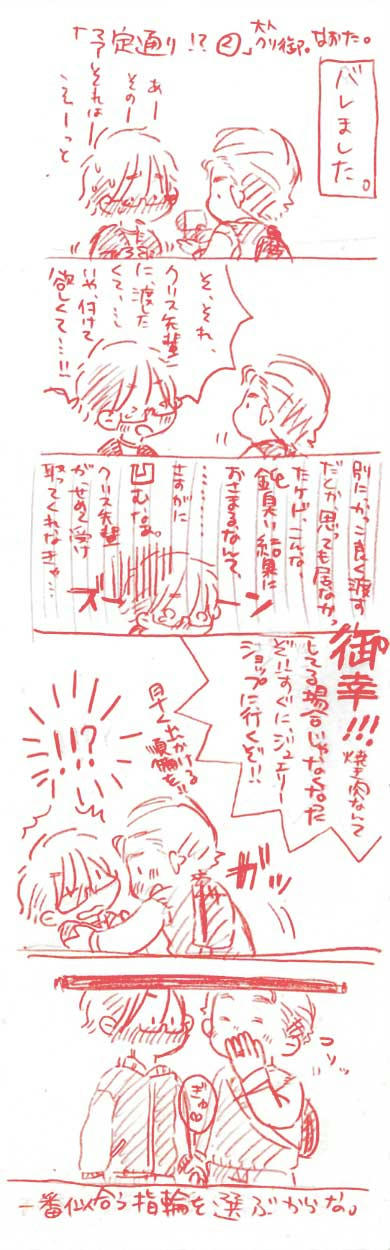 「予定通り!?②」大人クリ御。なかた。
バレました。
あー
そのー
それはー
えーっと
そ、それ、
クリス先輩
に、渡した
くて、…。
いや、付けて
欲しくて…!!
別にかっこ良く渡す
だとか、思っても居なかっ
たケド、こんな
鈍臭い結果に
おさまるなんて、
………
さすがに
凹むなぁ。
クリス先輩
がせめて受け
取ってくれなきゃ…
ズーーン
御幸!!!
焼き肉なんて
してる場合じゃなくなった
ぞ!!すぐにジュエリー
ショップに行くぞ!!
早く上がける
指輪を!!
ガッ
!!?
コソッ
ぎゅ
一番似合う指輪を選ぶからな。